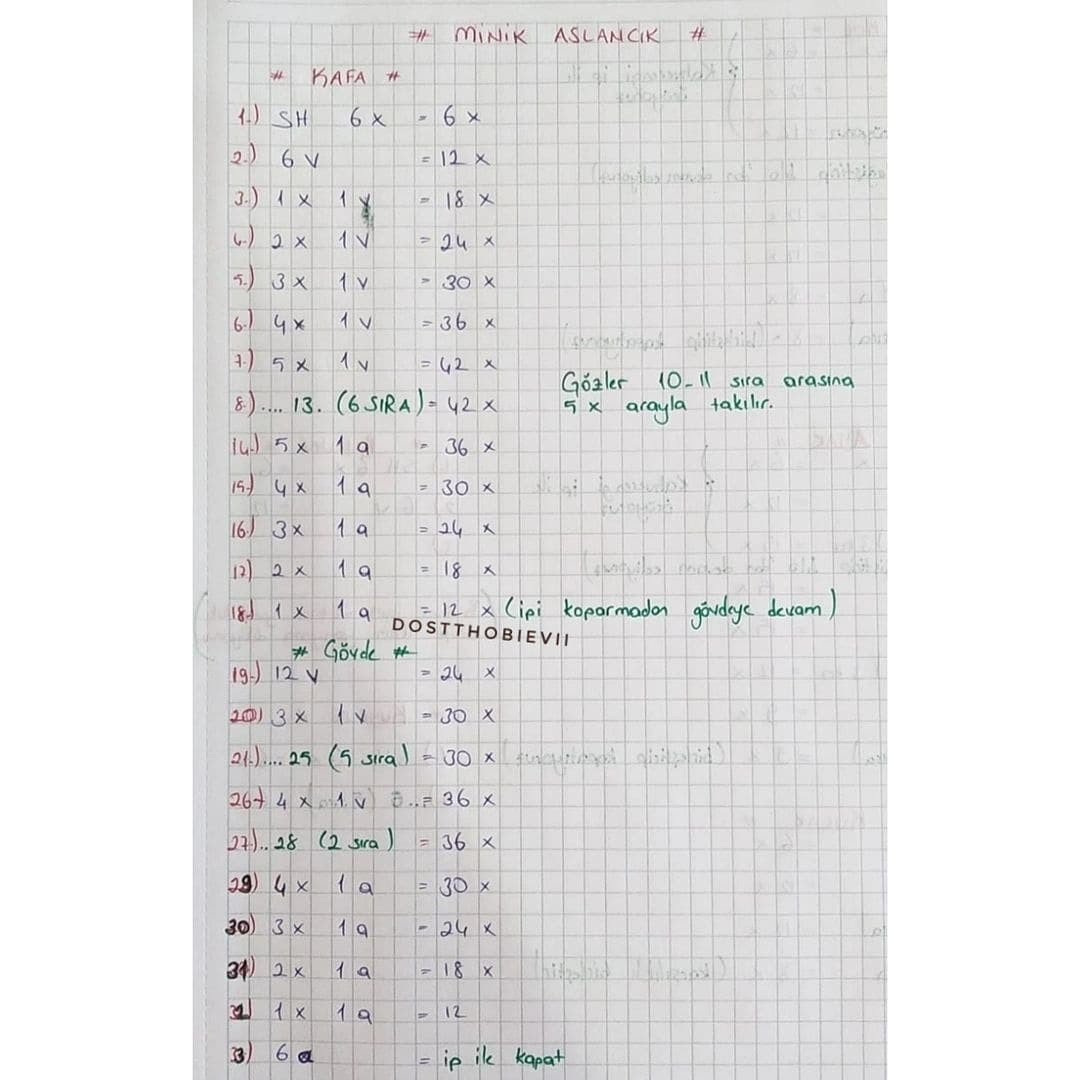 # MİNİK ASLANCIK #
# KAFA #
1.) SH 6 x = 6 x
2.) 6 V = 12 x
3.) 1 x 1 v = 18 x
4.) 2 x 1 V = 24 x
5.) 3 x 1 v = 30 x
6.) 4 x 1 v = 36 x
7.) 5 x 1 v = 42 x
Gözler 10-11 sıra arasına
8.).... 13. (6 SIRA) = 42 x
5 x arayla takılır.
14.) 5 x 1 a = 36 x
15.) 4 x 1 a = 30 x
16.) 3 x 1 a = 24 x
17.) 2 x 1 a = 18 x
18.) 1 x 1 a = 12 x (ipi koparmadan gövdeye devam)
DOSTTHOBIEVII
# Gövde #
19.) 12 v = 24 x
20.) 3 x 1 v = 30 x
21.).... 25 (5 sıra) = 30 x
26.) 4 x 1 v = 36 x
27.).. 28 (2 sıra) = 36 x
29) 4 x 1 a = 30 x
30) 3 x 1 a = 24 x
31) 2 x 1 a = 18 x
32) 1 x 1 a = 12
3) 6 a = ip ile kapat